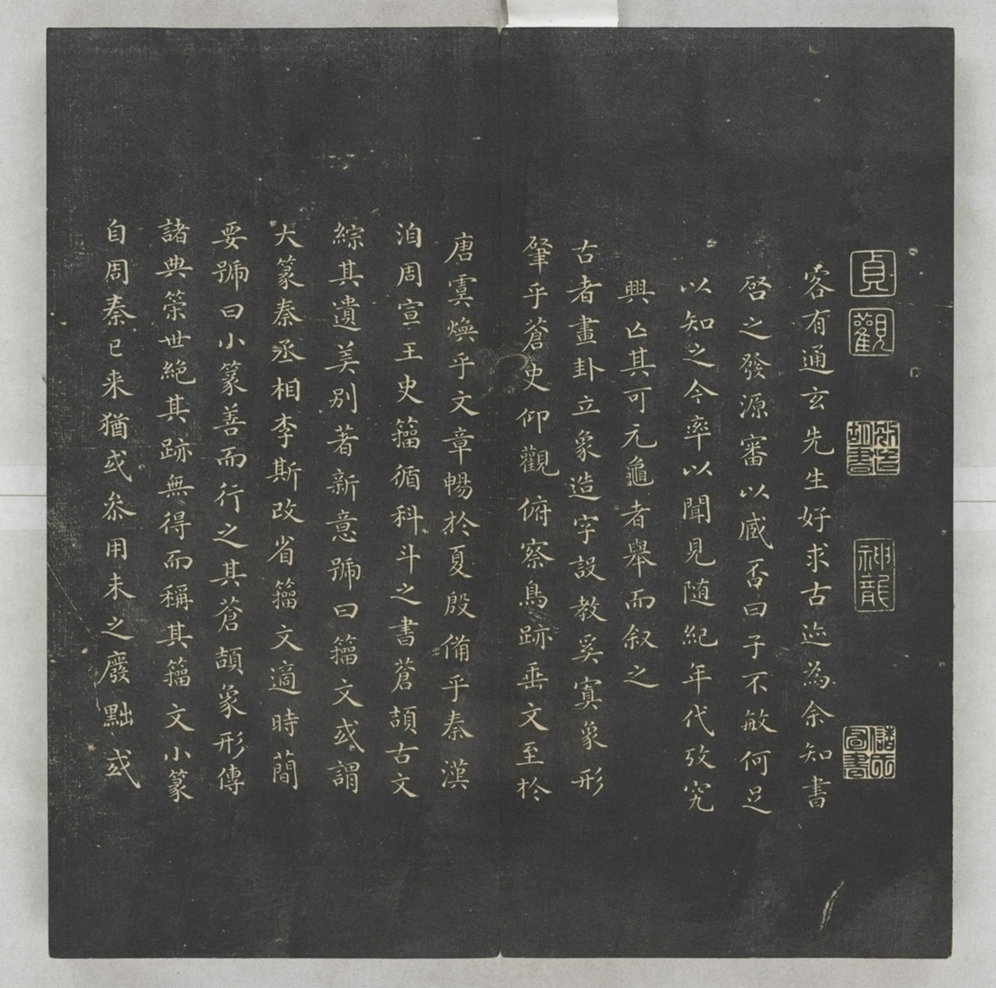 貞觀
神龍
客有通玄先生好求古迹為余知書
啓之發源審以臧否曰子不敏何足
以知之今率以聞見随紀年代攷究
興亡其可元龜者舉而叙之
古者畫卦立象造字設教爰寘象形
肇乎蒼史仰觀俯察鳥跡垂文至於
唐虞煥乎文章暢於夏殷備乎秦漢
洎周宣王史籕循科斗之書蒼頡古文
綜其遺美別著新意號曰籕文或謂
大篆秦丞相李斯改省籕文適時蕳
要號曰小篆善而行之其蒼頡象形傳
諸典策世絶其跡無得而稱其籕文小篆
自周秦已来猶或叅用未之廢黜或